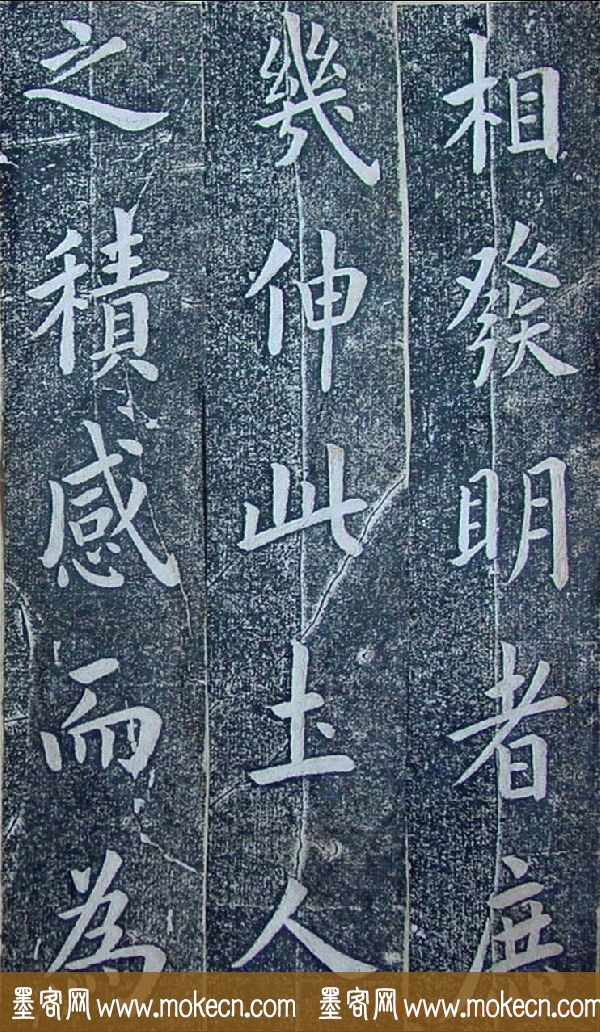 相發明者庶
幾伸此土人
之積感而為
墨客网 www.mokecn.com 墨客网 www.mokecn.com